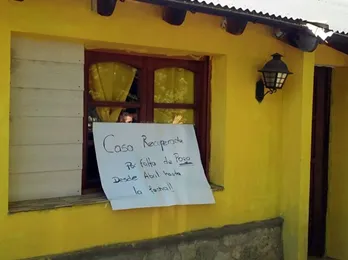 Casa Recuperada
Por falta de Pago
Desde Abril hasta
la fecha!!